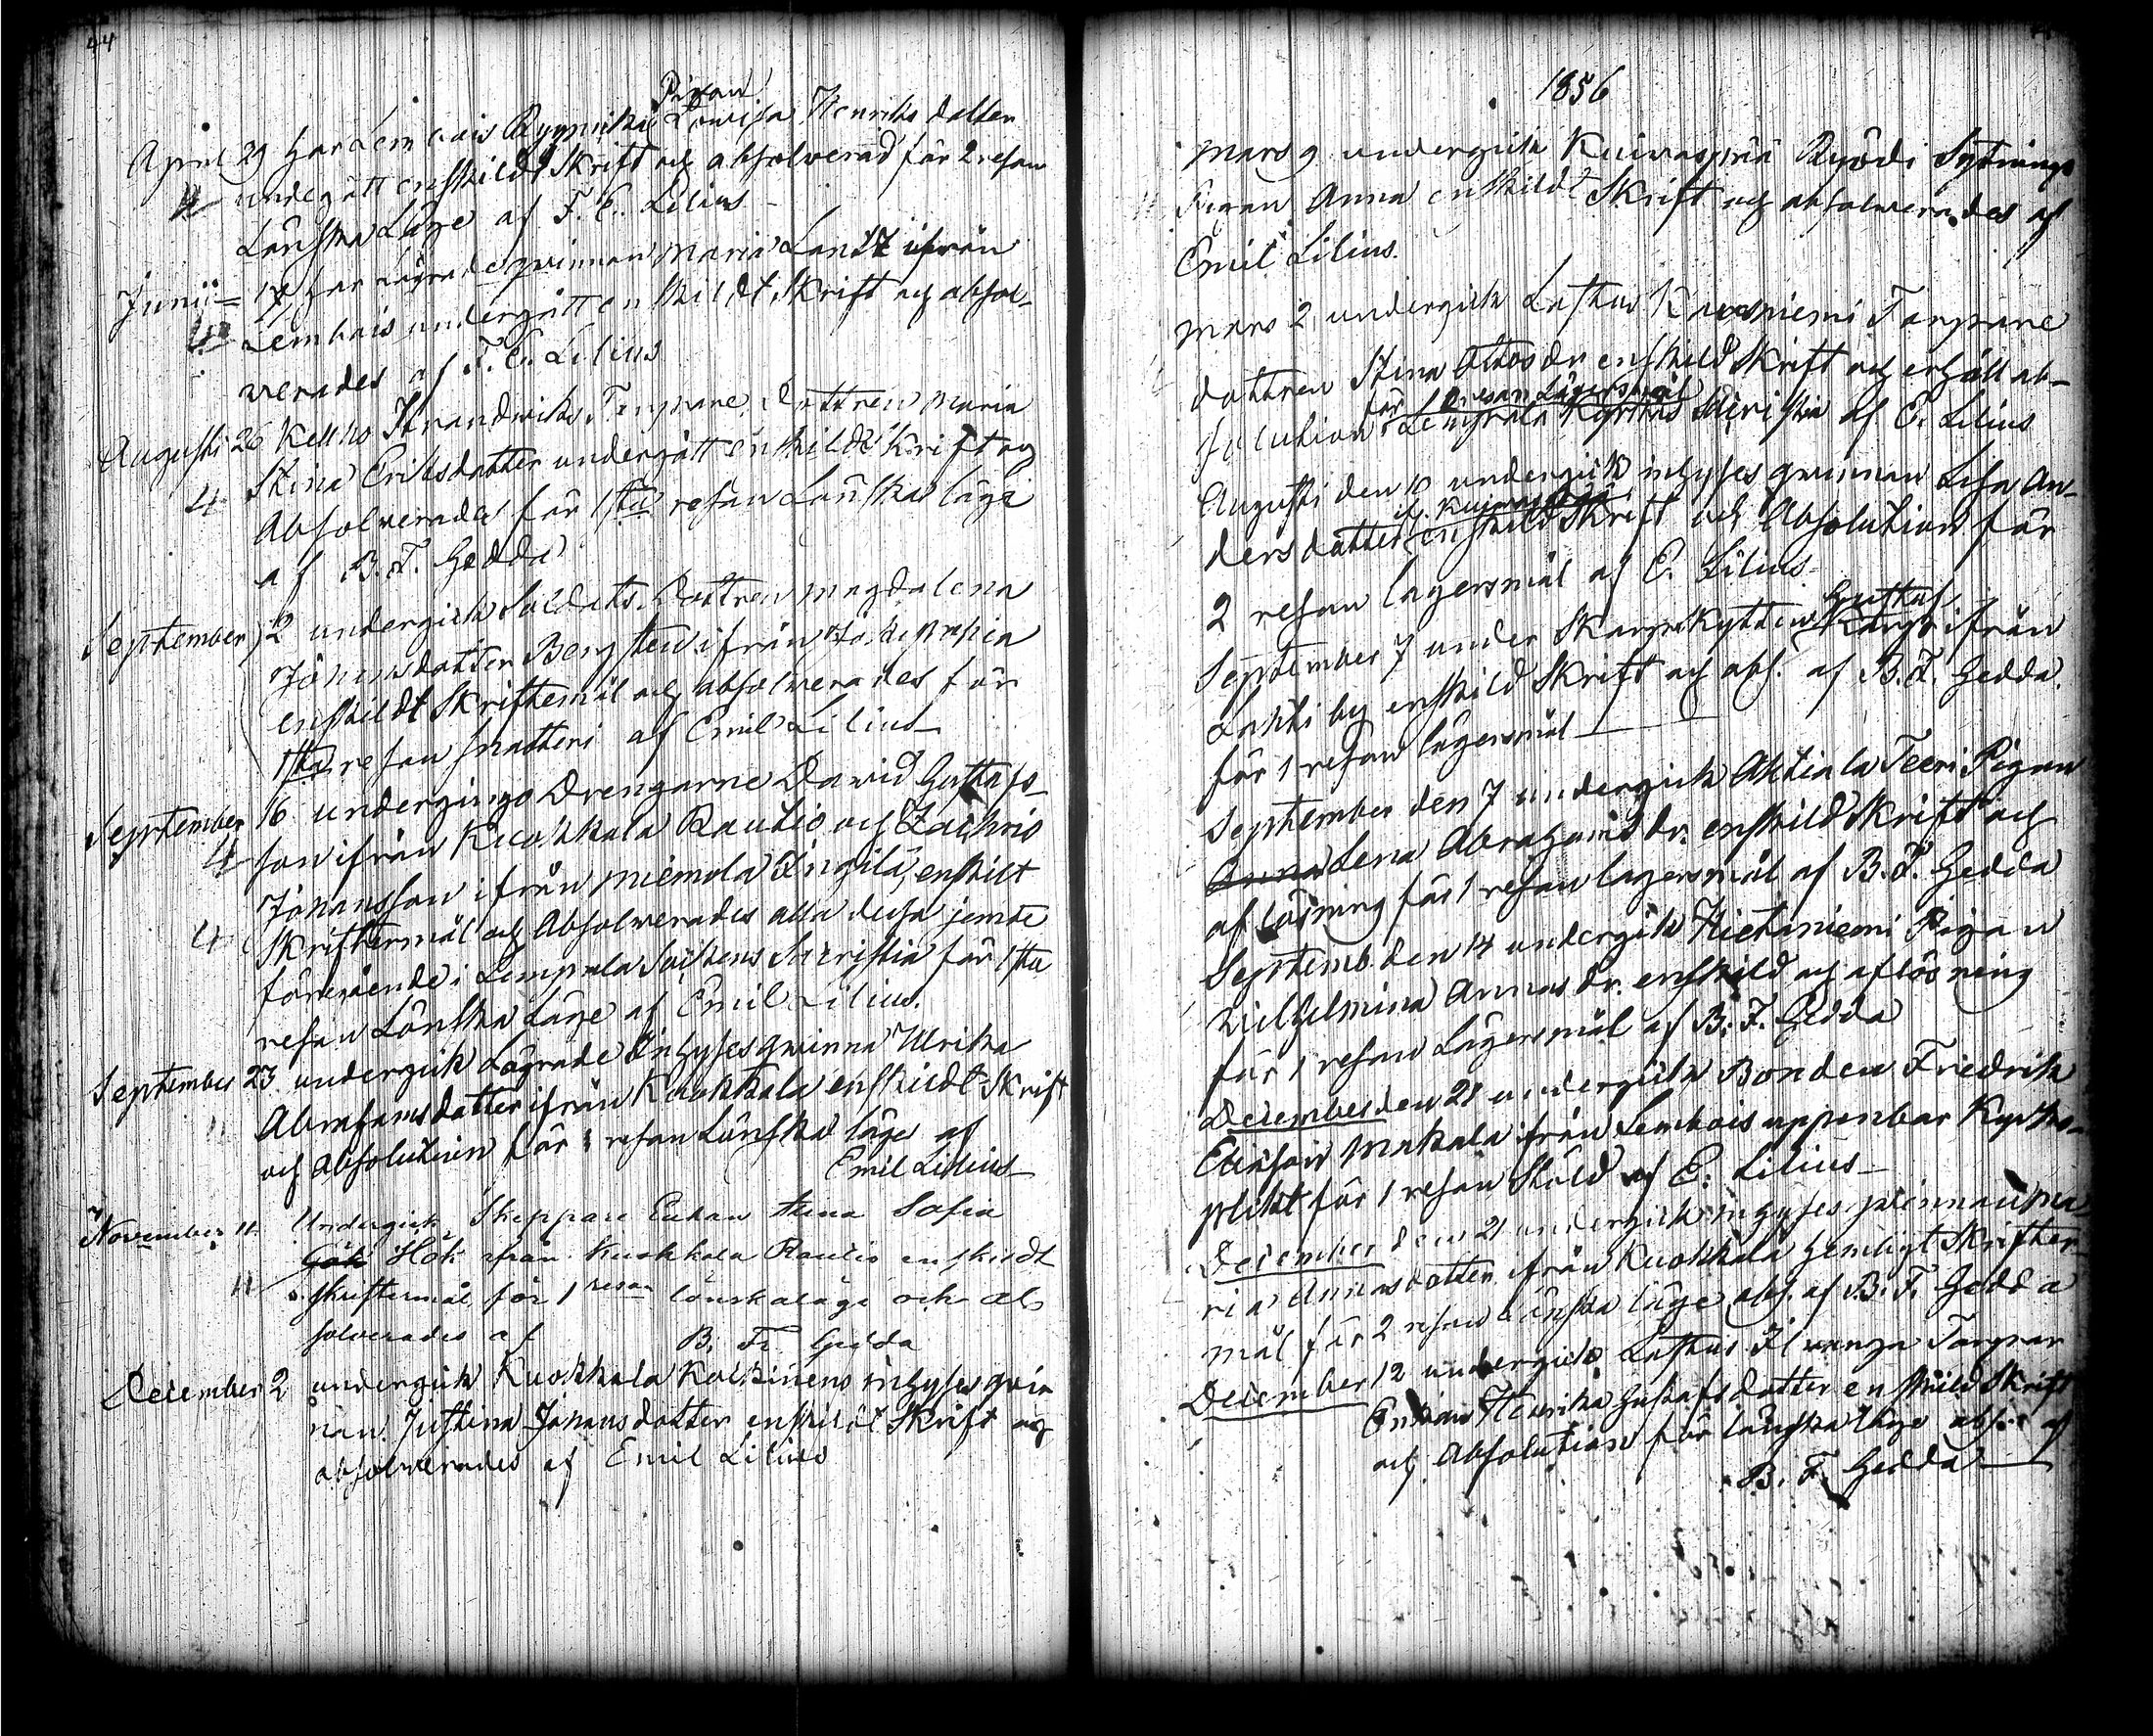 44
Pigan
April 29 har Lembois Ryynikä Lowisa Henriks datter
undegått enskildt Skrift och absolverad för 2 resan
Lönska Läge af F. E. Lilius
Junii 17 har Lägrade qwinnan Maria ifrån
Lembois undergått enskildt Skrift och absol-
verades af F. E. Lilius
Augusti 26 Kelho Strandwiks Torpare Dottren Maria
4 Stina Eriksdotter undergått enskildt Skrift og
Absolverades för 1sta resan Lönska läge
af B. F. Gedda
September 2 undergick Soldats Dottren Magdalena
Johansdotter Bergsten ifrån
enskildt Skriftemål och absolverades för
1sta resan af Emil Lilius
September 16 undergingo Drengarne David Gustafs-
4 son ifrån Kuokkala Rautio och Zachris
Johansson ifrån Miemola Ingilä, enskilt
4 Skriftermål och Absolverades alla dessa jemte
föregående i Lempala Sockens Sacristia för 1sta
resan Lönska Läge af Emil Lilius.
September 23 undergick Lägrade Inhyses qwinna Ulrika
11 Abrahamsdotter ifrån Kuokkala enskildt Skrift
och Absolution för 1 resan Lönska läge af
Emil Lilius
November 11 Undergick Skeppare Enkan Sofia
Gök Hök från Kuokkala Rautio enskildt
11 skriftermål för 1 resan lönskaläge och ab
solverades af B. Fr. Gedda
December 2 undergick Kuokkala Kolkinens inhyses qvin
nan Justina Johansdotter enskildt Skrift og
absolverades af Emil Lilius
1856
Mars 9 undergick Kuivaspää Äyödi Sytnings
11 Pigan Anna enskildt Skrift och absolverades af
Emil Lilius.
Mars 2 undergick Lastus Torpare
dottren Stina enskild Skrift och erhållt ab-
för resan Lägersmål
solution i Lempala Kyrkas Sacristia af E. Lilius
Augusti den 10 undergick inhyses qwinnan Lisa An-
if. Kuivaspää
dersdatter enskild Skrift och Absolution för
2 resan lagersmål af E. Lilius
Gustaf
September 7 under Skarpskytten ifrån
Lahti by enskild Skrift och abs. af B. F. Gedda
för 1 resan lägersmål
September den 7 undergick Ahtiala Teeri Pigan
Anna Lena Abrahams dr. enskild Skrift och
aflösning för 1 resan lagersmål af B. F. Gedda
Septemb. den 14 undergick Hietaniemi Pigan
Wilhelmina Annas dr. enskild och aflösning
för 1 resan Lägersmål af B. F. Gedda
December den 21 undergick Bonden Fredrik
Eliasson Makala ifrån Lembois uppenbar Kyrko-
plikt för 1 resan Stöld af E. Lilius
December den 21 undergick inhyses qvinnan Ma
ria Annasdotter ifrån Kuokkala hemligt Skrifter
mål för 2 resan Lönska läge abs. af B. F. Gedda
December 12 undergick Lastus Torpar
Enkan Henrika Gustafsdotter enskild Skrift
och Absolution för lönska läge abs. af
B. F. Gedda